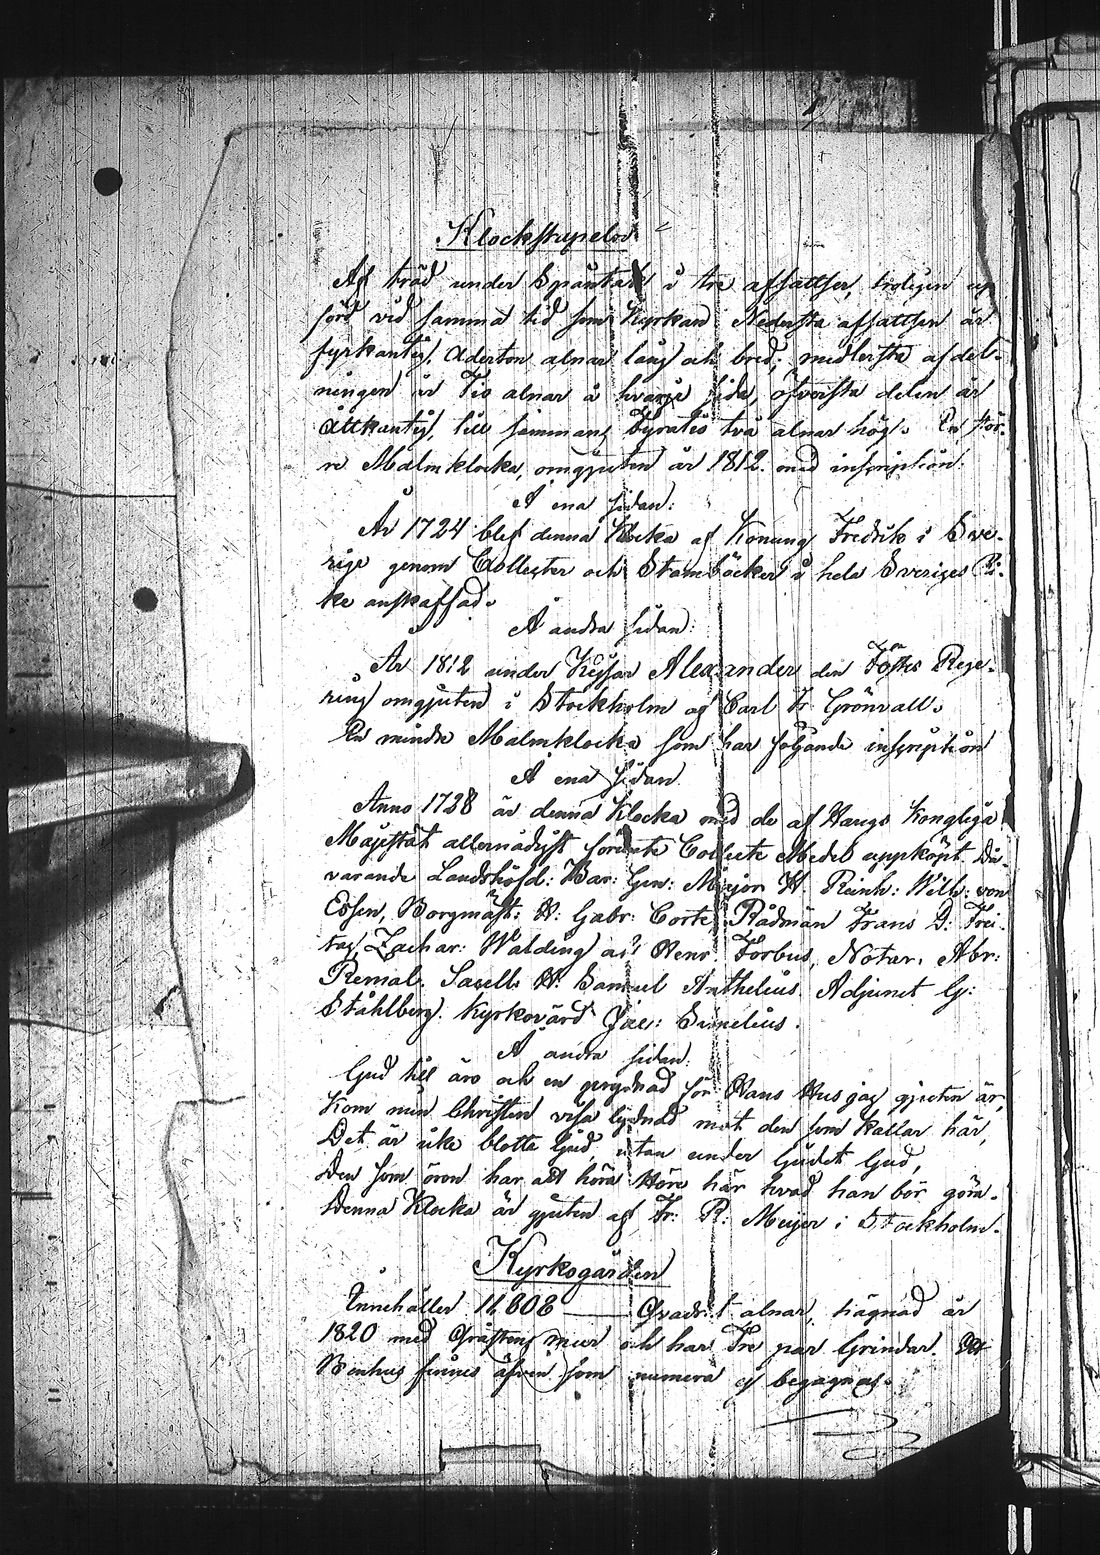 Klockstapeln
Af träd under Spåntak i tre afsattser, troligen upp
förd vid samma tid som Kyrkan. Nedersta afsattsen är
fyrkantig, Aderton alnar lång och bred; medlersta afdel-
ningen är Tio alnar å hvarje sida, öfversta delen är
Åttkantig, till samman Fyratio två alnar hög. En stör-
re Malmklocka, omgjuten år 1812. med inscription:
Å ena sidan:
År 1724 blef denna Klocka af Konung Fredrik i Sve-
rige genom Collecter och Stamböcker i hela Sveriges Ri-
ke anskaffad.
Å andra sidan:
År 1812 under Kejsar Alexander den Förstes Rege-
ring omgjuten i Stockholm af Carl Fr Grönvall.
En mindre Malmklocka som har följande inscription
Å ena sidan
Anno 1728 är denna Klocka med de af Hans Kongliga
Majestät allernådigst förunte Collecte Medel uppköpt, Då-
varande Landshöfd: Bar: Gen: Major H. Reinh: Wilh: von
Essen, Borgmäst: H: Gabr: Corte Rådmän Frans D: Frei-
tag, Zachar: Walding Henr. Forbus, Notar. Abr:
Remal. Sacell: H: Samuel Anthelius. Adjunct G:
Ståhlberg. Kyrkovärd Jac: Sunelius.
Å andra sidan:
Gud till äro och en prydnad för Hans Hus jag gjuten är,
Kom min Christen visa lydnad mot den som kallar här,
Det är icke blotta ljud, utan under ljudet Gud,
Den som öron har att höra Höre här hvad han bör göra.
Denna Klocka är gjuten af Fr: R: Meijer i Stockholm.
Kyrkogården
Innehåller 11,808 Qvadrat alnar, hägnad år
1820 med Gråstens mur och har Tre par Grindar. Ett
Benhus finnes äfven som numera ej begagnas.